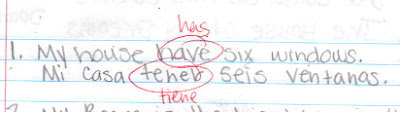 has
1. My house have six windows.
Mi casa tener seis ventanas.
tiene